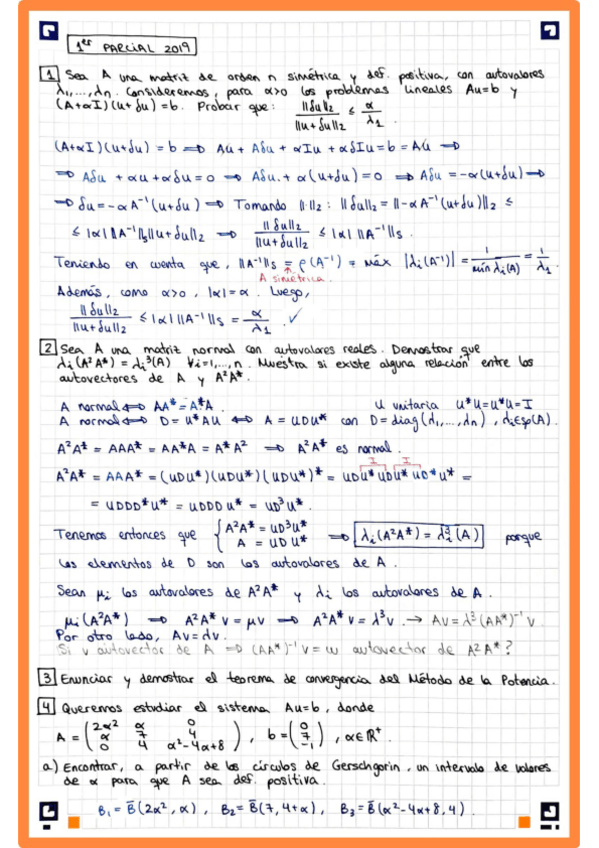 1er PARCIAL 2019
1 Sea A una matriz de orden n simétrica y def. positiva, con autovalores
λ1,...,λn. Consideremos, para α>0 los problemas lineales Au=b y
(A+αI)(u+δu)=b. Probar que: ||δu||2 / ||u+δu||2 ≤ α/λ1.
(A+αI)(u+δu) = b ⟹ Au + Aδu + αIu + αδIu = b = Au ⟹
⟹ Aδu + αu + αδu = 0 ⟹ Aδu + α(u+δu) = 0 ⟹ Aδu = -α(u+δu) ⟹
⟹ δu = -αA⁻¹(u+δu) ⟹ Tomando ||·||2 : ||δu||2 = ||-αA⁻¹(u+δu)||2 ≤
≤ |α| ||A⁻¹||s ||u+δu||2 ⟹ ||δu||2 / ||u+δu||2 ≤ |α| ||A⁻¹||s.
Teniendo en cuenta que, ||A⁻¹||s = ρ(A⁻¹) = máx |λi(A⁻¹)| = 1/mín λi(A) = 1/λ1.
A simétrica
Además, como α>0, |α|=α. Luego,
||δu||2 / ||u+δu||2 ≤ |α| ||A⁻¹||s = α/λ1. ✓
2 Sea A una matriz normal con autovalores reales. Demostrar que
λi(A²A*) = λi³(A) ∀i=1,...,n. Muestra si existe alguna relación entre los
autovectores de A y A²A*.
A normal ⟺ AA* = A*A. U unitaria U*U=U*U=I
A normal ⟺ D = U*AU ⟺ A = UDU* con D = diag(λ1,...,λn), λi∈sp(A).
A²A* = AAA* = AA*A = A*A² ⟹ A²A* es normal.
I I
A²A* = AAA* = (UDU*)(UDU*)(UDU*)* = UDU*UDU*UD*U* =
= UDDD*U* = UDDDU* = UD³U*.
Tenemos entonces que { A²A* = UD³U* A = UDU* ⟹ λi(A²A*) = λi³(A) porque
los elementos de D son los autovalores de A.
Sean μi los autovalores de A²A* y λi los autovalores de A.
μi(A²A*) ⟹ A²A*v = μv ⟹ A²A*v = λ³v. → Av = λ³(AA*)⁻¹v.
Por otro lado, Av = λv.
Si v autovector de A ⟹ (AA*)⁻¹v = w autovector de A²A*?
3 Enunciar y demostrar el teorema de convergencia del Método de la Potencia.
4 Queremos estudiar el sistema Au=b, donde
A = ( 2α² α 0 ; α 7 4 ; 0 4 α²-4α+8 ), b = ( 0 ; 7 ; -1 ), α∈ℝ⁺.
a) Encontrar, a partir de los círculos de Gerschgorin, un intervalo de valores
de α para que A sea def. positiva.
B1 = B̄(2α², α), B2 = B̄(7, 4+α), B3 = B̄(α²-4α+8, 4).